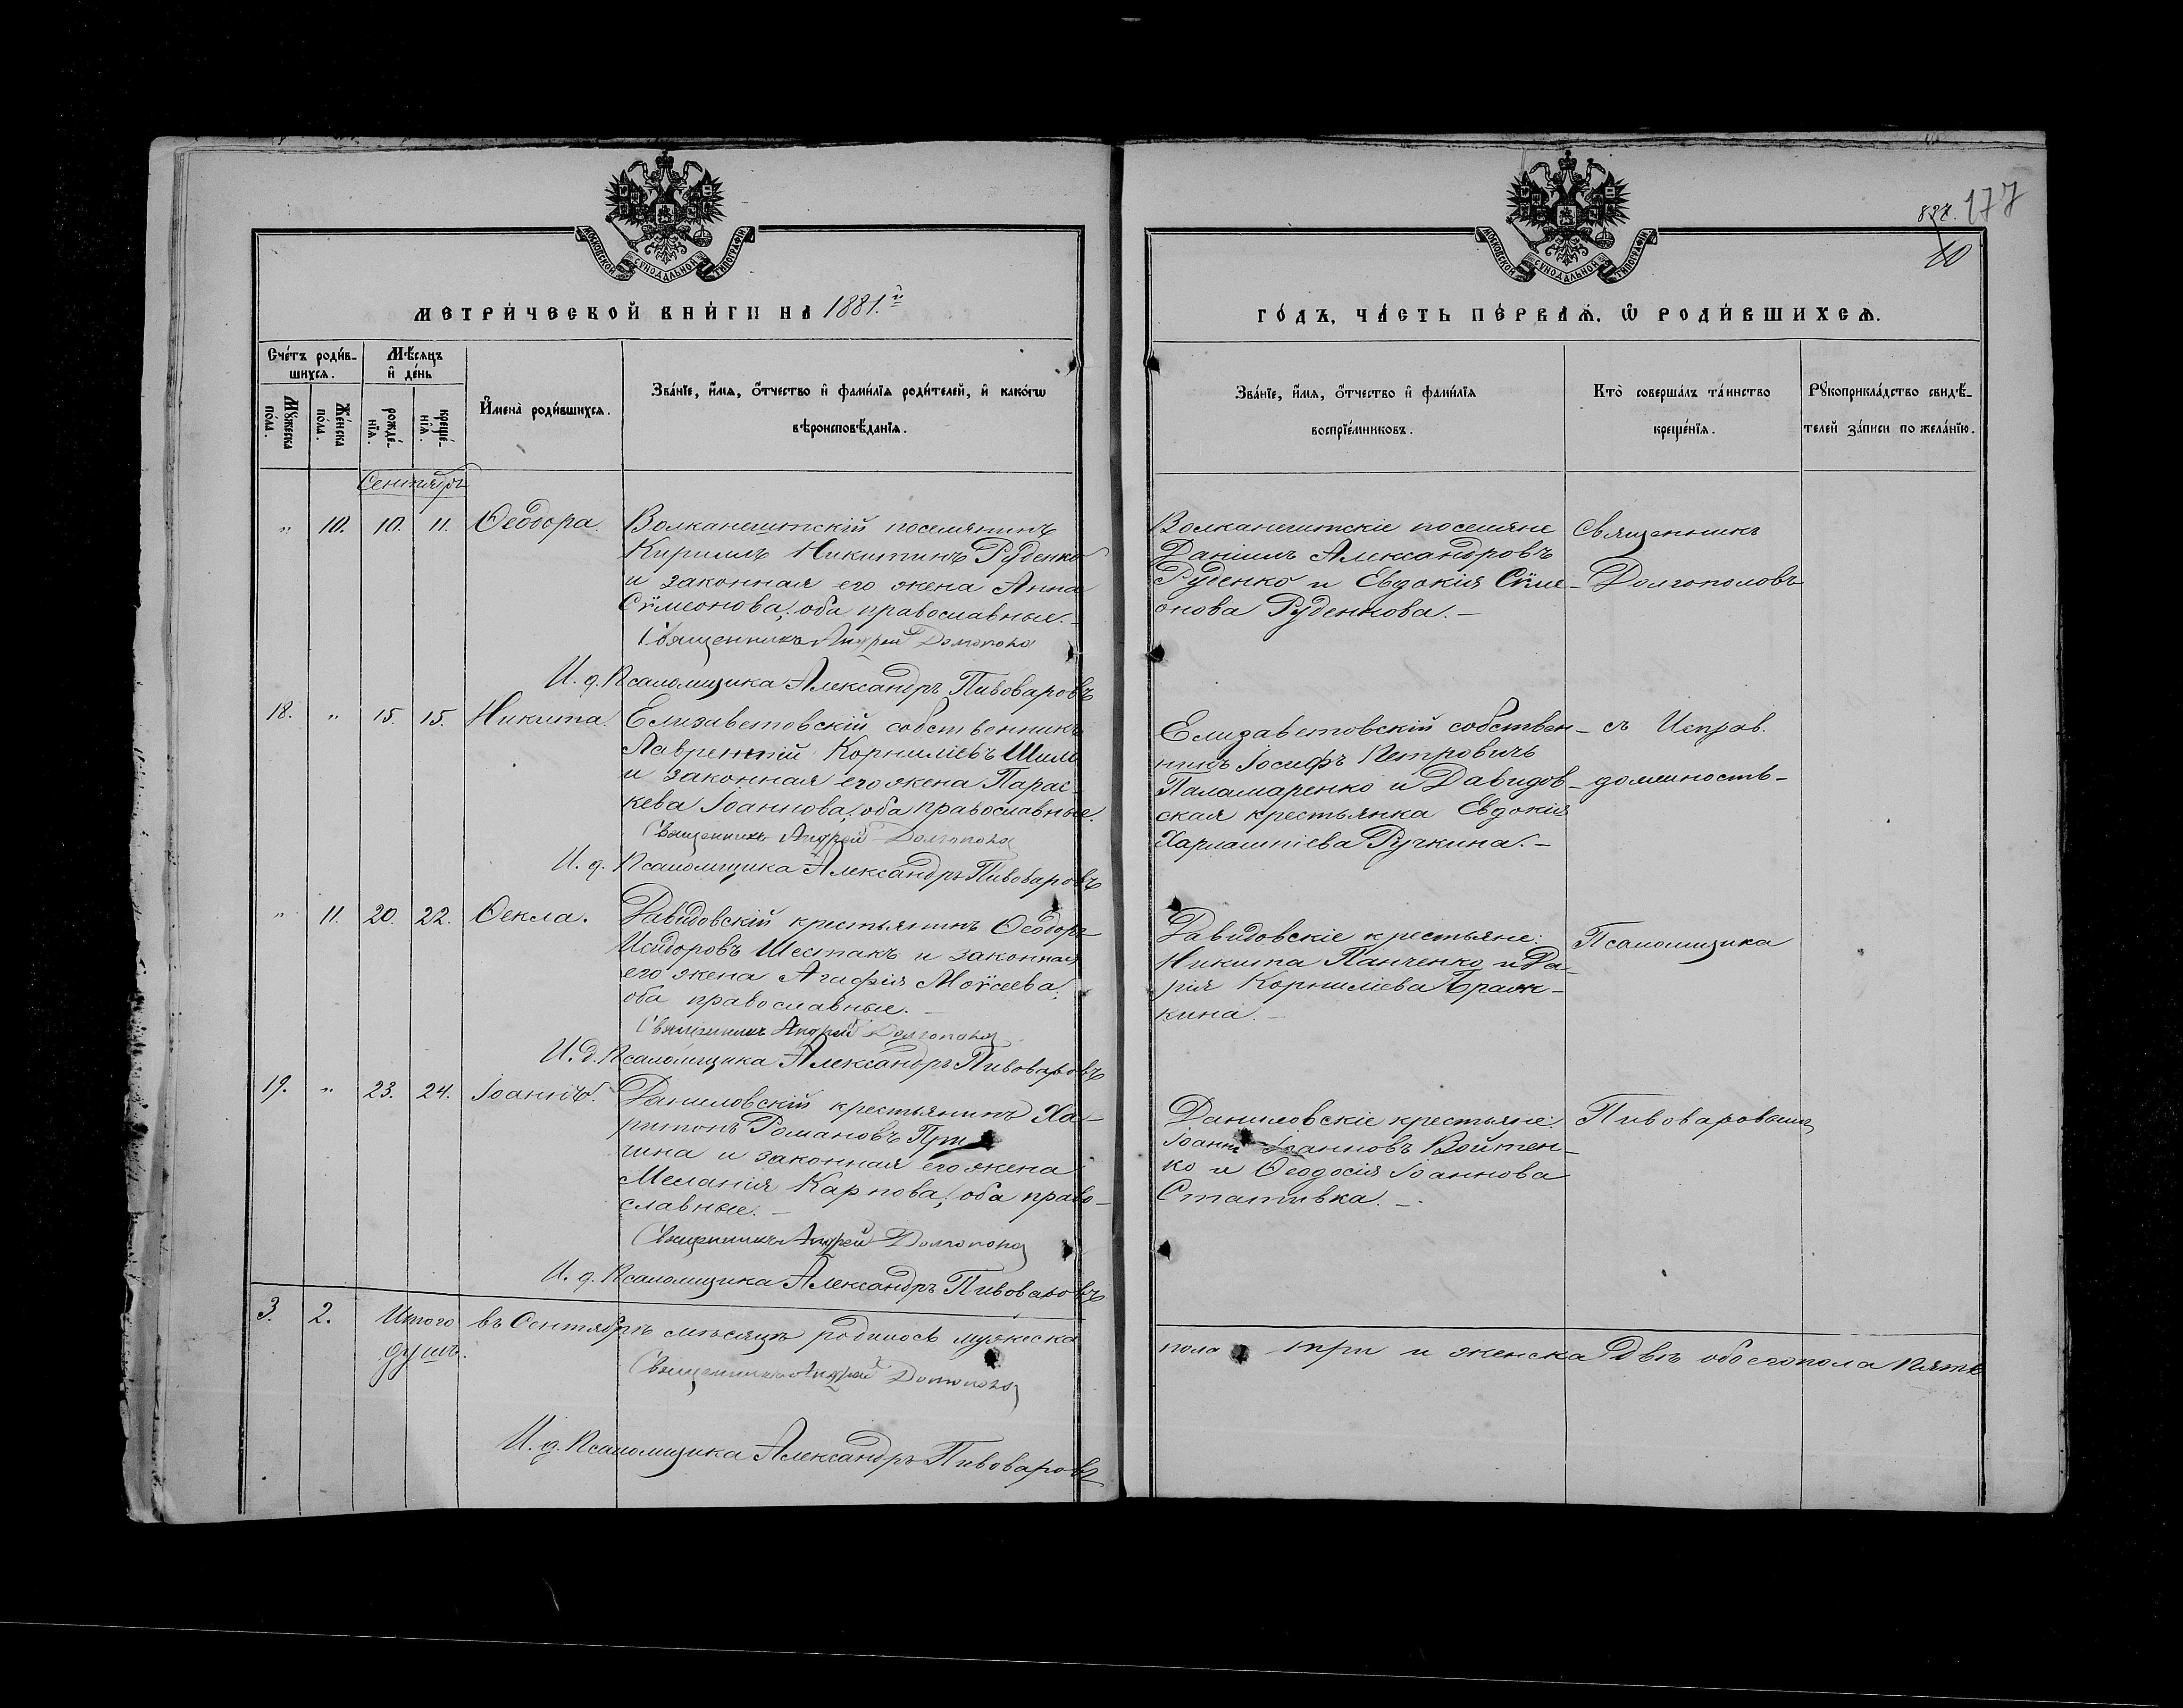 МОСКОВСКОЙ СѴНОДАЛЬНОЙ ТИПОГРАФІИ
МЕТРИ́ЧЕСКОЙ КНИ́ГИ НА 1881.й
Сче́тъ роди́в-
шихсѧ.
Мꙋ́жеска
по́ла.
Же́нска
по́ла.
Мѣ́сѧцъ
и҆ де́нь
рожде́-
нїѧ.
креще́-
нїѧ.
И҆мена̀ роди́вшихсѧ.
Зва́нїе, и҆́мѧ, ѻ҆́тчество и҆ фами́лїѧ роди́телей, и҆ како́гѡ
вѣроисповѣ́данїѧ.
Сентябрь
" 10. 10. 11. Ѳеодора.
Волканештскій поселянинъ
Кириллъ Никитинъ Руденко
и законная его жена Анна
Сѵмеонова; оба православные.
Священникъ Андрей Долгополов
И. д. Псаломщика Александръ Пивоваровъ
18. " 15. 15. Никита.
Елизаветовскій собственникъ
Лаврентій Корниліевъ Шило
и законная его жена Парас-
кева Іоаннова; оба православные.
Священникъ Андрей Долгополов
И. д. Псаломщика Александръ Пивоваровъ
" 11. 20. 22. Ѳекла.
Давидовскій крестьянинъ Ѳеодоръ
Исидоровъ Шестакъ и законная
его жена Агафія Моѵсеева;
оба православные. –
Священникъ Андрей Долгополов
И. д. Псаломщика Александръ Пивоваровъ
19. " 23. 24. Іоаннъ.
Даниловскій крестьянинъ Ха-
ритонъ Романовъ
и законная его жена
Мелания Карпова; оба право-
славные. –
Священникъ Андрей Долгополов
И. д. Псаломщика Александръ Пивоваровъ
3. 2. Итого въ Сентябрѣ мѣсяцѣ родилось мужеска
душъ.
Священникъ Андрей Долгополов
И. д. Псаломщика Александръ Пивоваровъ
177
10
МОСКОВСКОЙ СѴНОДАЛЬНОЙ ТИПОГРАФІИ
ГО́ДЪ, ЧА́СТЬ ПЕ́РВАѦ, Ѡ҆ РОДИ́ВШИХСѦ.
Зва́нїе, и҆́мѧ, ѻ҆́тчество и҆ фами́лїѧ
воспрїе́мниковъ.
Кто̀ соверша́лъ та́инство
креще́нїѧ.
Рꙋкоприкла́дство свидѣ́-
телей за́писи по жела́нїю.
Волканештскіе поселяне
Даніилъ Александровъ
Руденко и Евдокія Сѵме-
онова Руденкова. –
Священникъ
Долгополовъ
Елизаветовскій собствен-
никъ Іосифъ Петровичъ
Паламаренко и Давидов-
ская крестьянка Евдокія
Харлампіева Ручкина. –
съ Исправ.
должность-
Давидовскіе крестьяне:
Никита Панченко и Да-
рія Корниліева
кина. –
Псаломщика
Даниловскіе крестьяне:
Іоаннъ Іоанновъ Войтен-
ко и Ѳеодосія Іоаннова
Стативка. –
Пивоваровымъ
пола три и женска двѣ обоего пола пять